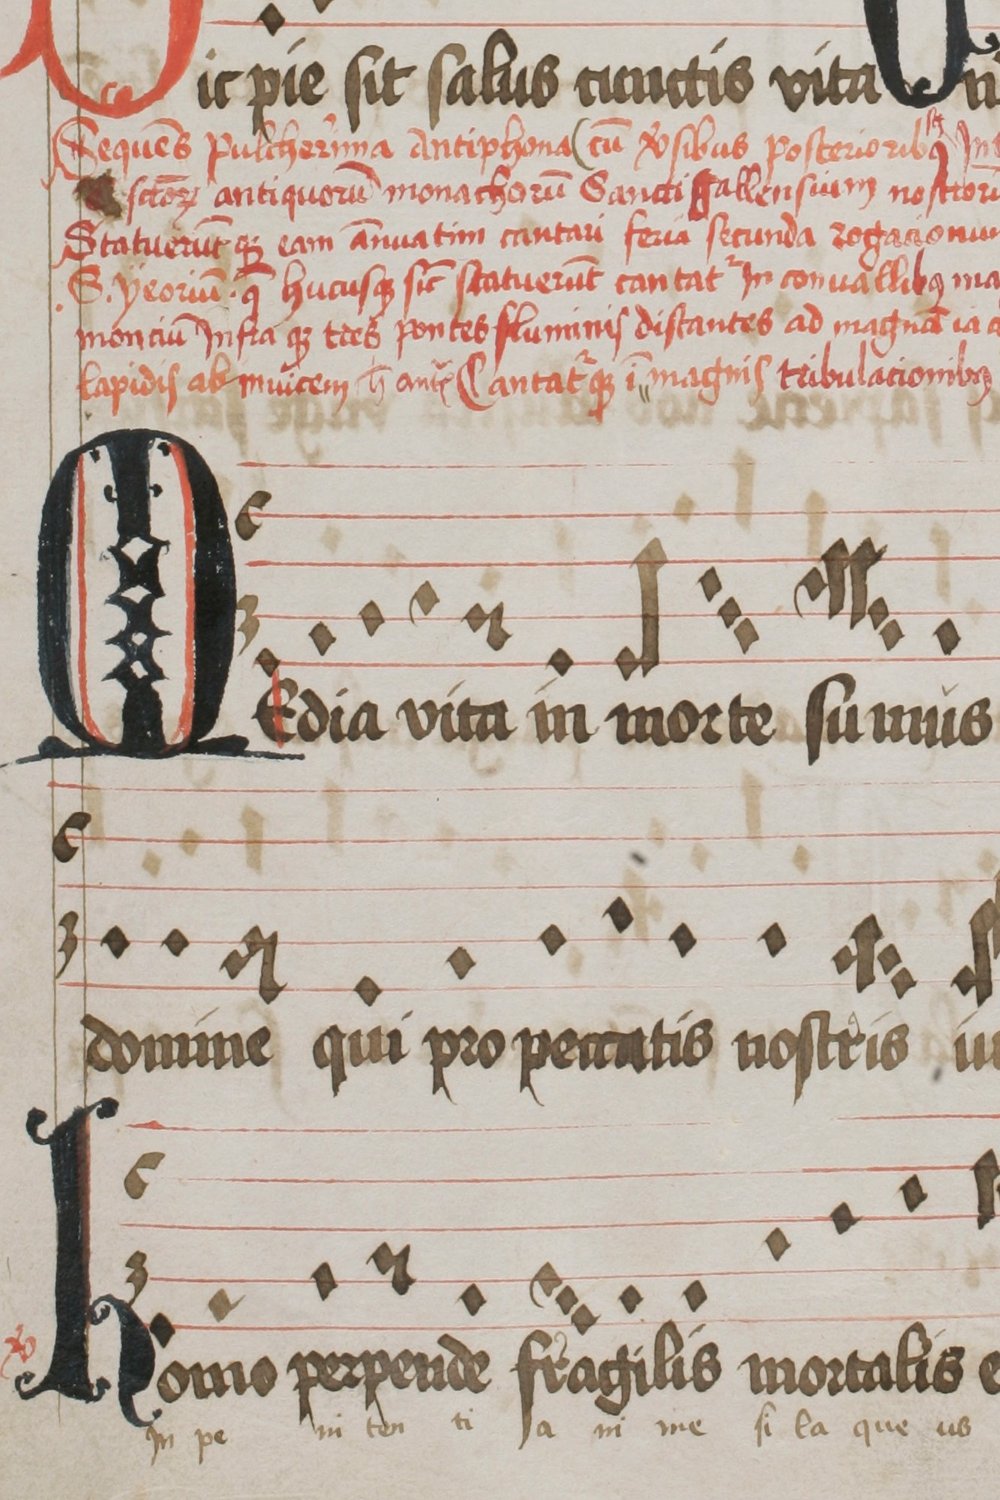 ic pie sit salus cunctis vita
Sequēs pulcherrima Antiphona cū v̄sibus posterioribꝫ
sctōꝝ antiquorū monachorū Sancti gallensium nostrorū
Statuerūt qꝫ eam ānuatim cantari feria secunda rogacionum
S. yeoriū. q̄ hucusqꝫ sic̄ statuerūt cantat᷑ in conuallibꝫ
monciū Infra qꝫ pontes fluminis distantes ad magnā
lapidis ab inuicem Cantat᷑ qꝫ ī magnis tribulacionibꝫ
MEdia vita in morte sumus
domine qui pro peccatis nostris
Homo perpende fragilis mortalis
In pe ni ten ti a ni me si la que us